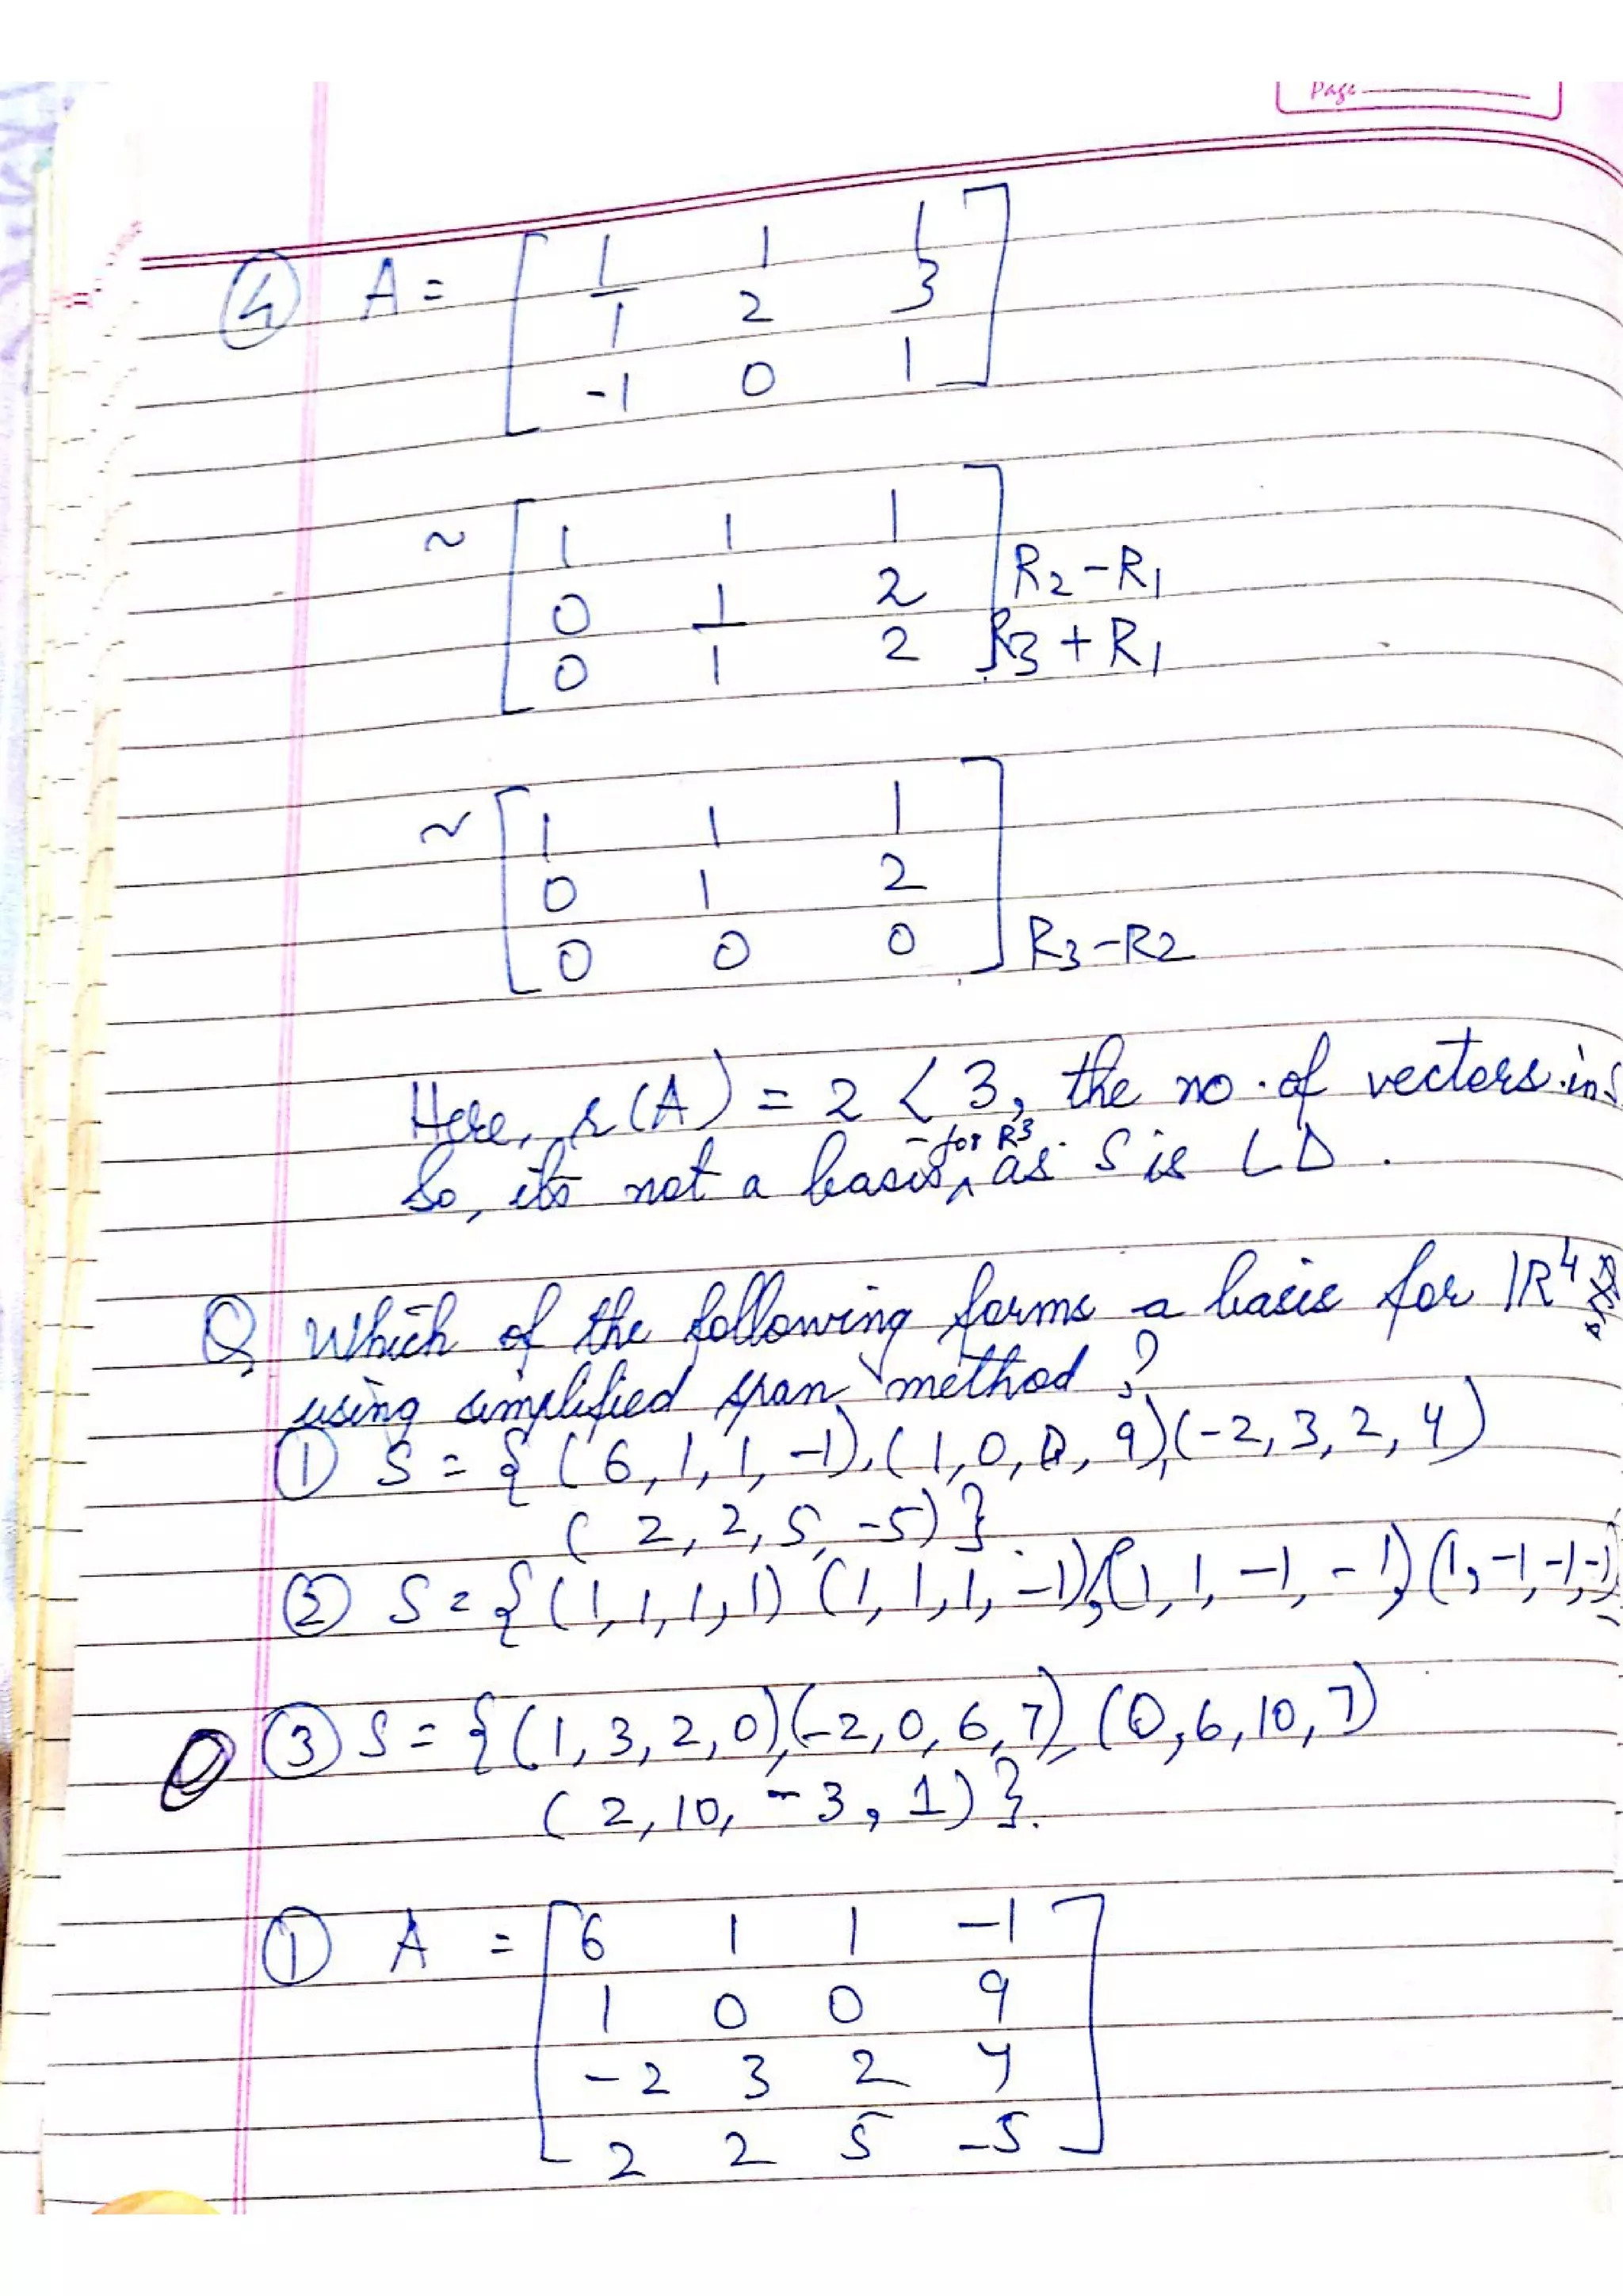 Page
④ A = [ 1 1 1
1 2 3
-1 0 1 ]
~ [ 1 1 1
0 1 2 ] R2-R1
0 1 2 R3+R1
~ [ 1 1 1
0 1 2
0 0 0 ] R3-R2
Here, r(A) = 2 < 3, the no. of vectors in S
So, its not a basis for R³, as S is LD.
Q Which of the following forms a basis for IR⁴
using simplified span method?
① S = {(6,1,1,-1),(1,0,0,9),(-2,3,2,4)
(2,2,5,-5)}
② S = {(1,1,1,1) (1,1,1,-1),(1,1,-1,-1),(1,-1,-1,-1)
③ S = {(1,3,2,0),(-2,0,6,7),(0,6,10,7)
(2,10,-3,1)}.
① A = [ 6 1 1 -1
1 0 0 9
-2 3 2 4
2 2 5 -5 ]